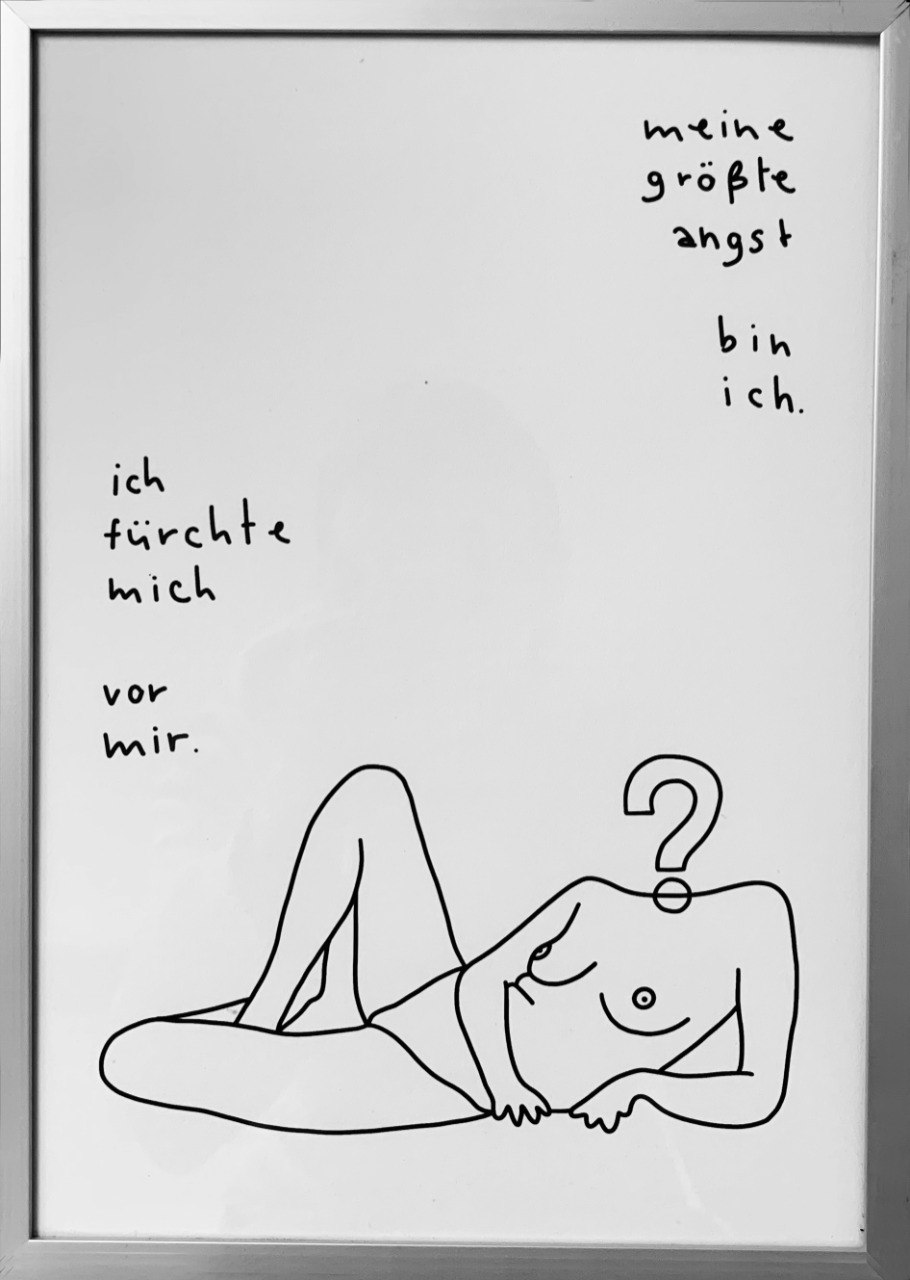 meine
größte
angst
bin
ich.
ich
fürchte
mich
vor
mir.